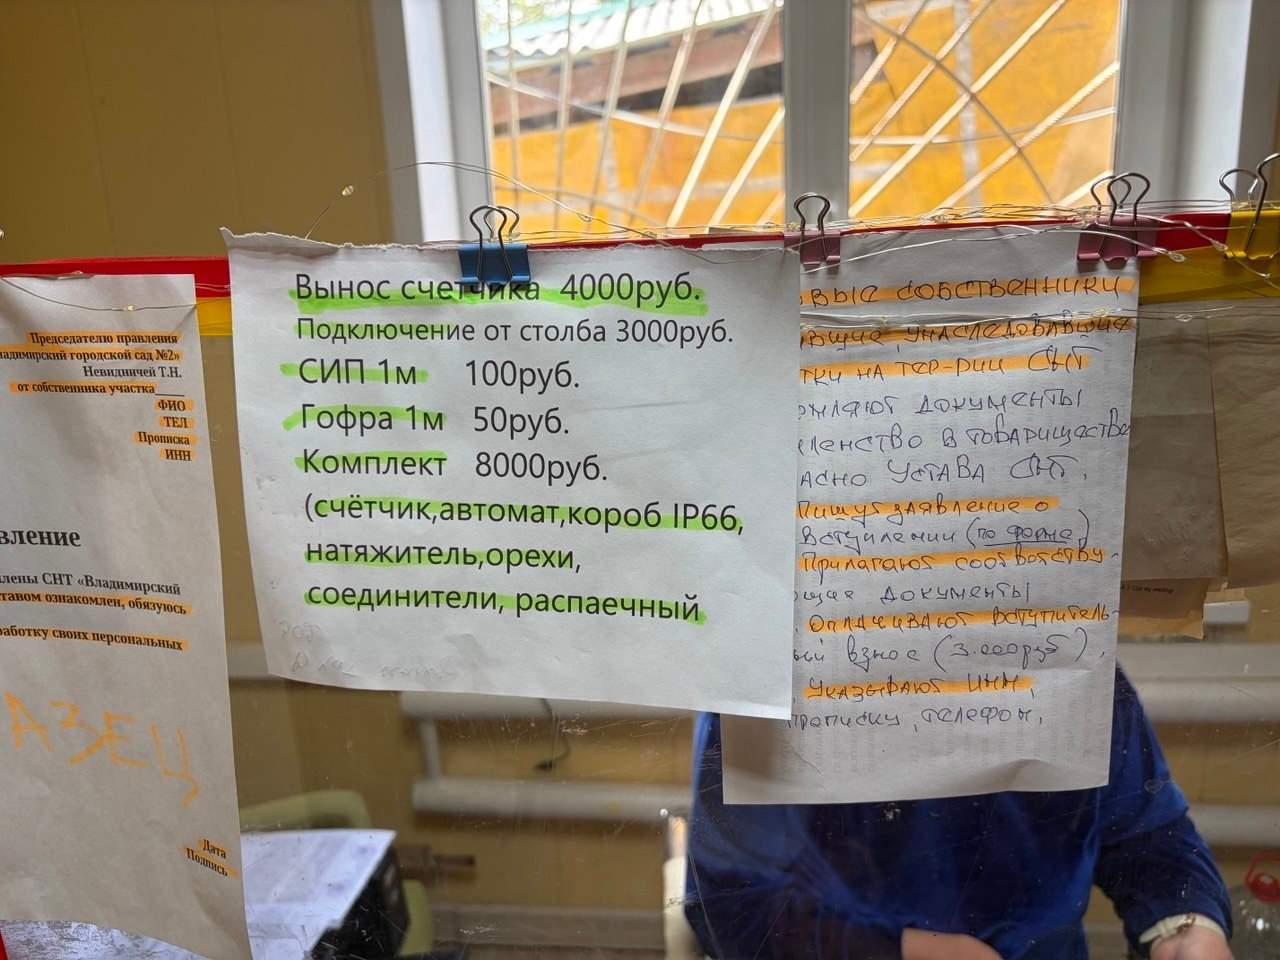 Председателю правления
ладимирский городской сад №2»
Невидничей Т.Н.
от собственника участка
ФИО
ТЕЛ
Прописка
ИНН
вление
лены СНТ «Владимирский
ставом ознакомлен, обязуюсь
работку своих персональных
АЗЕЦ
Дата
Подпись
Вынос счетчика 4000руб.
Подключение от столба 3000руб.
СИП 1м 100руб.
Гофра 1м 50руб.
Комплект 8000руб.
(счётчик,автомат,короб IP66,
натяжитель,орехи,
соединители, распаечный
вые собственники
вшие, унаследовавшие
тки на тер-рии СНТ
мляют документы
ленство в товариществе
асно Устава СНТ.
Пишут заявление о
вступлении (по форме)
Прилагают соответству-
ющие документы
Оплачивают вступитель-
ый взнос (3.000руб),
Указывают ИНН,
прописку, телефон.